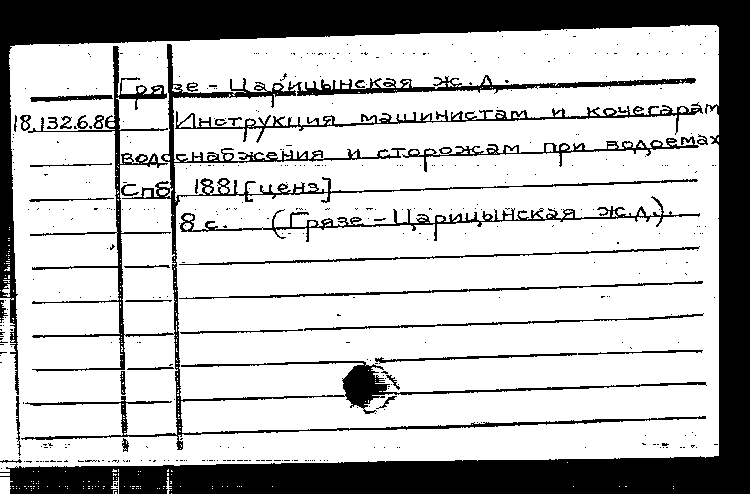 Грязе - Царицынская ж.д.
18.132.6.86 Инструкция машинистам и кочегарам
водоснабжения и сторожам при водоемах
Спб, 1881 [ценз]
8 с. (Грязе - Царицынская ж.д.).